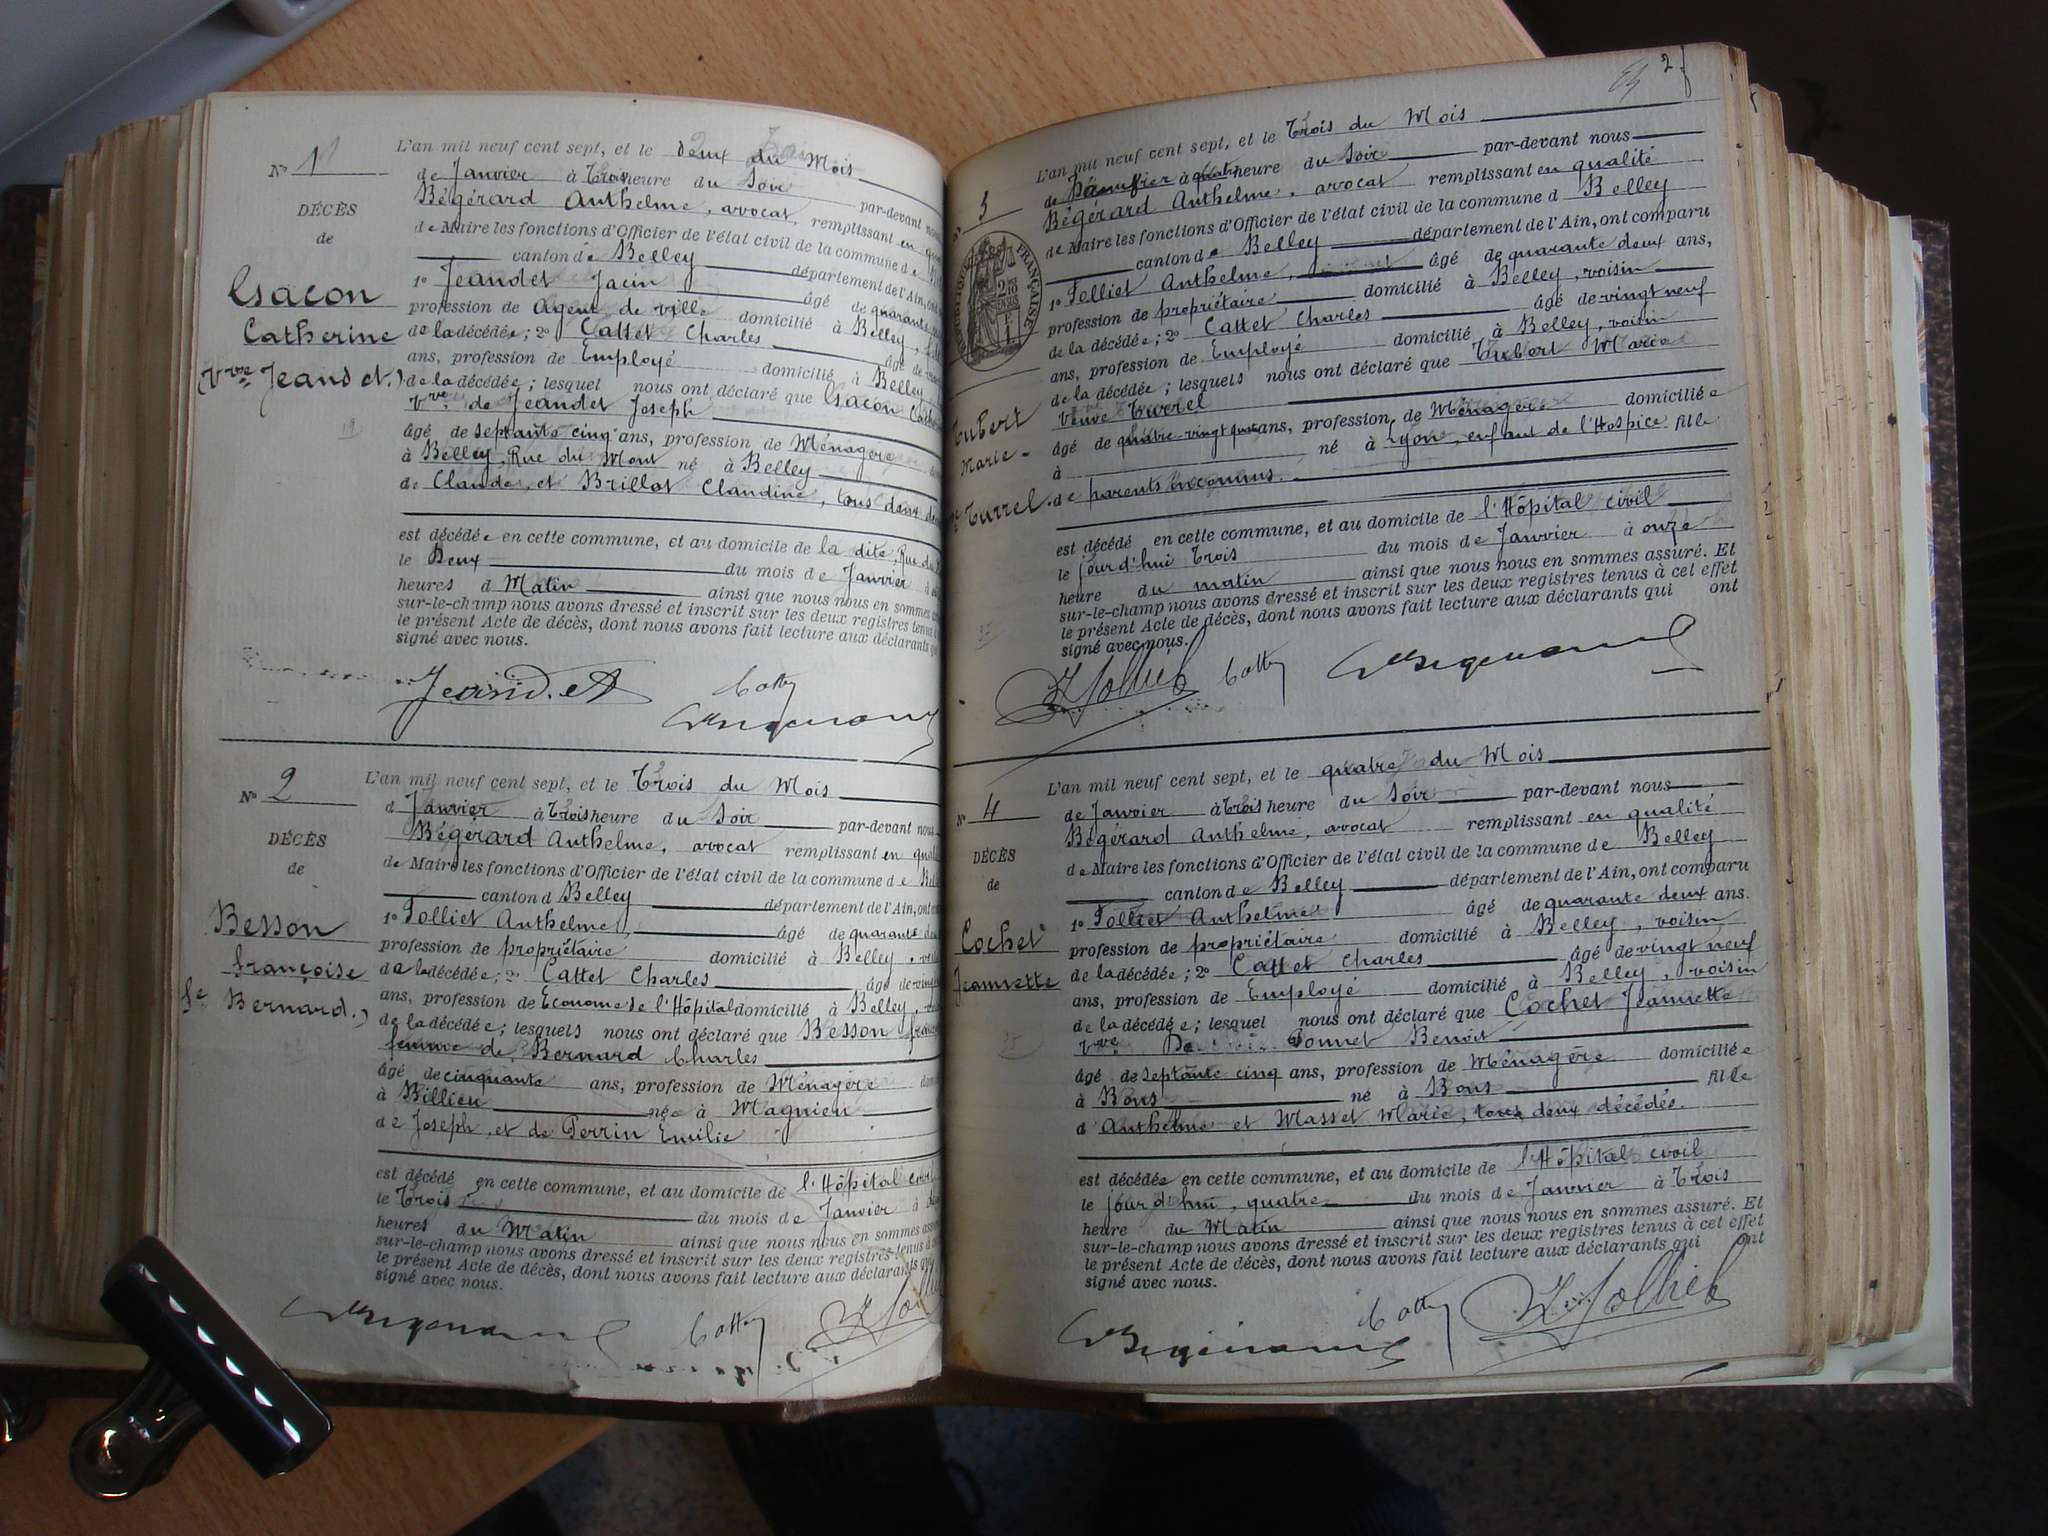 Nº 1
DÉCÈS
de
Gacon
Catherine
(Vve Jeandet.)
L'an mil neuf cent sept, et le Deux du Mois
de Janvier à Trois heure du Soir par-devant nous
Bégérard Anthelme, avocat, remplissant en
de Maire les fonctions d'Officier de l'état civil de la commune de
canton de Belley département de l'Ain, ont
1º Jeandet Jacin âgé de quarante
profession de Agent de ville domicilié à Belley,
de la décédée; 2º Cattet Charles âgé de
ans, profession de Employé domicilié à Belley
de la décédée; lesquel nous ont déclaré que Gacon
Vve de Jeandet Joseph
âgé de septante cinq ans, profession de Ménagère
à Belley, Rue du Mont né à Belley
de Claude, et Brillat Claudine, tous deux
est décédée en cette commune, et au domicile de la dite, Rue du
le Deux du mois de Janvier à
heures d Matin ainsi que nous nous en sommes
sur-le-champ nous avons dressé et inscrit sur les deux registres tenus
le présent Acte de décès, dont nous avons fait lecture aux déclarants qui
signé avec nous.
Jeandet
Nº 2
DÉCÈS
de
Besson
Françoise
fe Bernard.)
L'an mil neuf cent sept, et le Trois du Mois
d Janvier à Trois heure du Soir par-devant nous
Bégérard Anthelme, avocat remplissant en
de Maire les fonctions d'Officier de l'état civil de la commune de
canton d Belley département de l'Ain, ont
1º Tolliet Anthelme, âgé de quarante
profession de propriétaire domicilié à Belley,
de la décédée; 2º Cattet Charles âgé de
ans, profession de Econome de l'Hôpital domicilié à Belley,
de la décédée; lesquels nous ont déclaré que Besson
femme de Bernard Charles
âgé de cinquante ans, profession de Ménagère
à Billieu née à Magnieu
de Joseph, et de Perrin Emilie
est décédé en cette commune, et au domicile de l'Hôpital civil
le Trois du mois de Janvier à
heures du Matin ainsi que nous nous en sommes
sur-le-champ nous avons dressé et inscrit sur les deux registres tenus à
le présent Acte de décès, dont nous avons fait lecture aux déclarants qui
signé avec nous.
2
3
Tubert
Marie
Turrel
L'an mil neuf cent sept, et le Trois du Mois
de Janvier à quatre heure du Soir par-devant nous
Bégérard Anthelme, avocat remplissant en qualité
de Maire les fonctions d'Officier de l'état civil de la commune d Belley
canton de Belley département de l'Ain, ont comparu
1º Tolliet Anthelme, âgé de quarante deux ans,
profession de propriétaire domicilié à Belley, voisin
de la décédée; 2º Cattet Charles âgé de vingt neuf
ans, profession de Employé domicilié à Belley, voisin
de la décédée; lesquels nous ont déclaré que Tubert Marie
Veuve Turrel
âgé de quatre-vingt quatre ans, profession de Ménagère domiciliée
à né à Lyon, enfant de l'Hospice fille
de parents inconnus.
est décédé en cette commune, et au domicile de l'Hôpital civil
le jourd'hui Trois du mois de Janvier à onze
heure du matin ainsi que nous nous en sommes assuré. Et
sur-le-champ nous avons dressé et inscrit sur les deux registres tenus à cet effet
le présent Acte de décès, dont nous avons fait lecture aux déclarants qui ont
signé avec nous.
Tolliet
Nº 4
DÉCÈS
de
Cochet
Jeannette
L'an mil neuf cent sept, et le quatre du Mois
de Janvier à Trois heure du Soir par-devant nous
Bégérard Anthelme, avocat remplissant en qualité
de Maire les fonctions d'Officier de l'état civil de la commune de Belley
canton de Belley département de l'Ain, ont comparu
1º Tolliet Anthelme âgé de quarante deux ans.
profession de propriétaire domicilié à Belley, voisin
de la décédée; 2º Cattet Charles âgé de vingt neuf
ans, profession de Employé domicilié à Belley, voisin
de la décédée; lesquel nous ont déclaré que Cochet Jeannette
Vve De Bonnet Benoit
âgé de septante cinq ans, profession de Ménagère domiciliée
à Bons né à Bons fille
d' Anthelme et Masset Marie, tous deux décédés.
est décédée en cette commune, et au domicile de l'Hôpital civil
le jourd'hui, quatre du mois de Janvier à Trois
heure du Matin ainsi que nous nous en sommes assuré. Et
sur-le-champ nous avons dressé et inscrit sur les deux registres tenus à cet effet
le présent Acte de décès, dont nous avons fait lecture aux déclarants qui ont
signé avec nous.
Tolliet